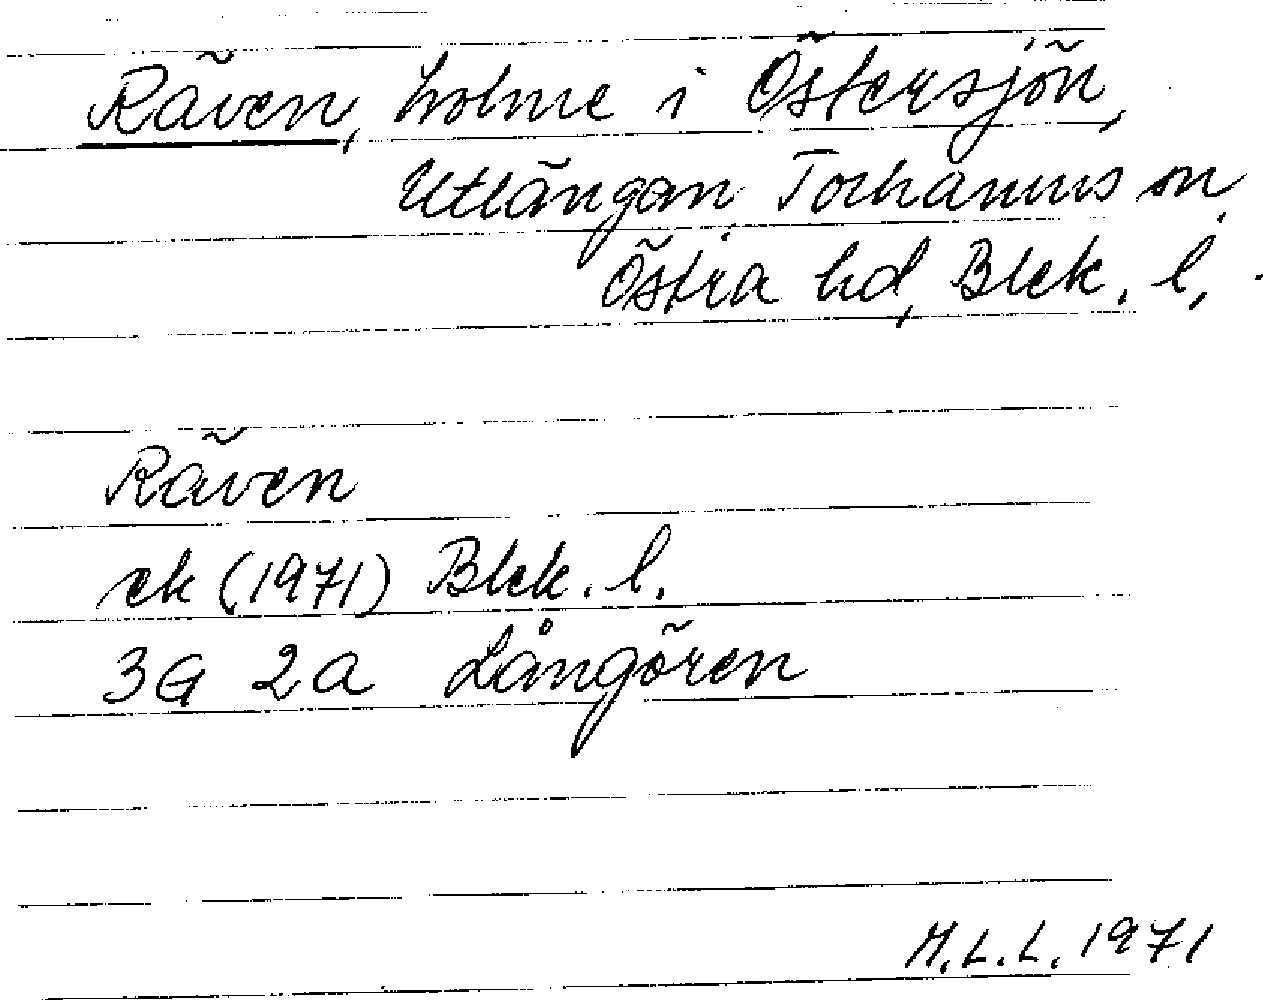 Räven, holme i Östersjön,
Utlängan, Torhamns sn,
Östra hd, Blek. l.
Räven
ek (1971) Blek. l.
3G 2a Långören
M.L.L. 1971